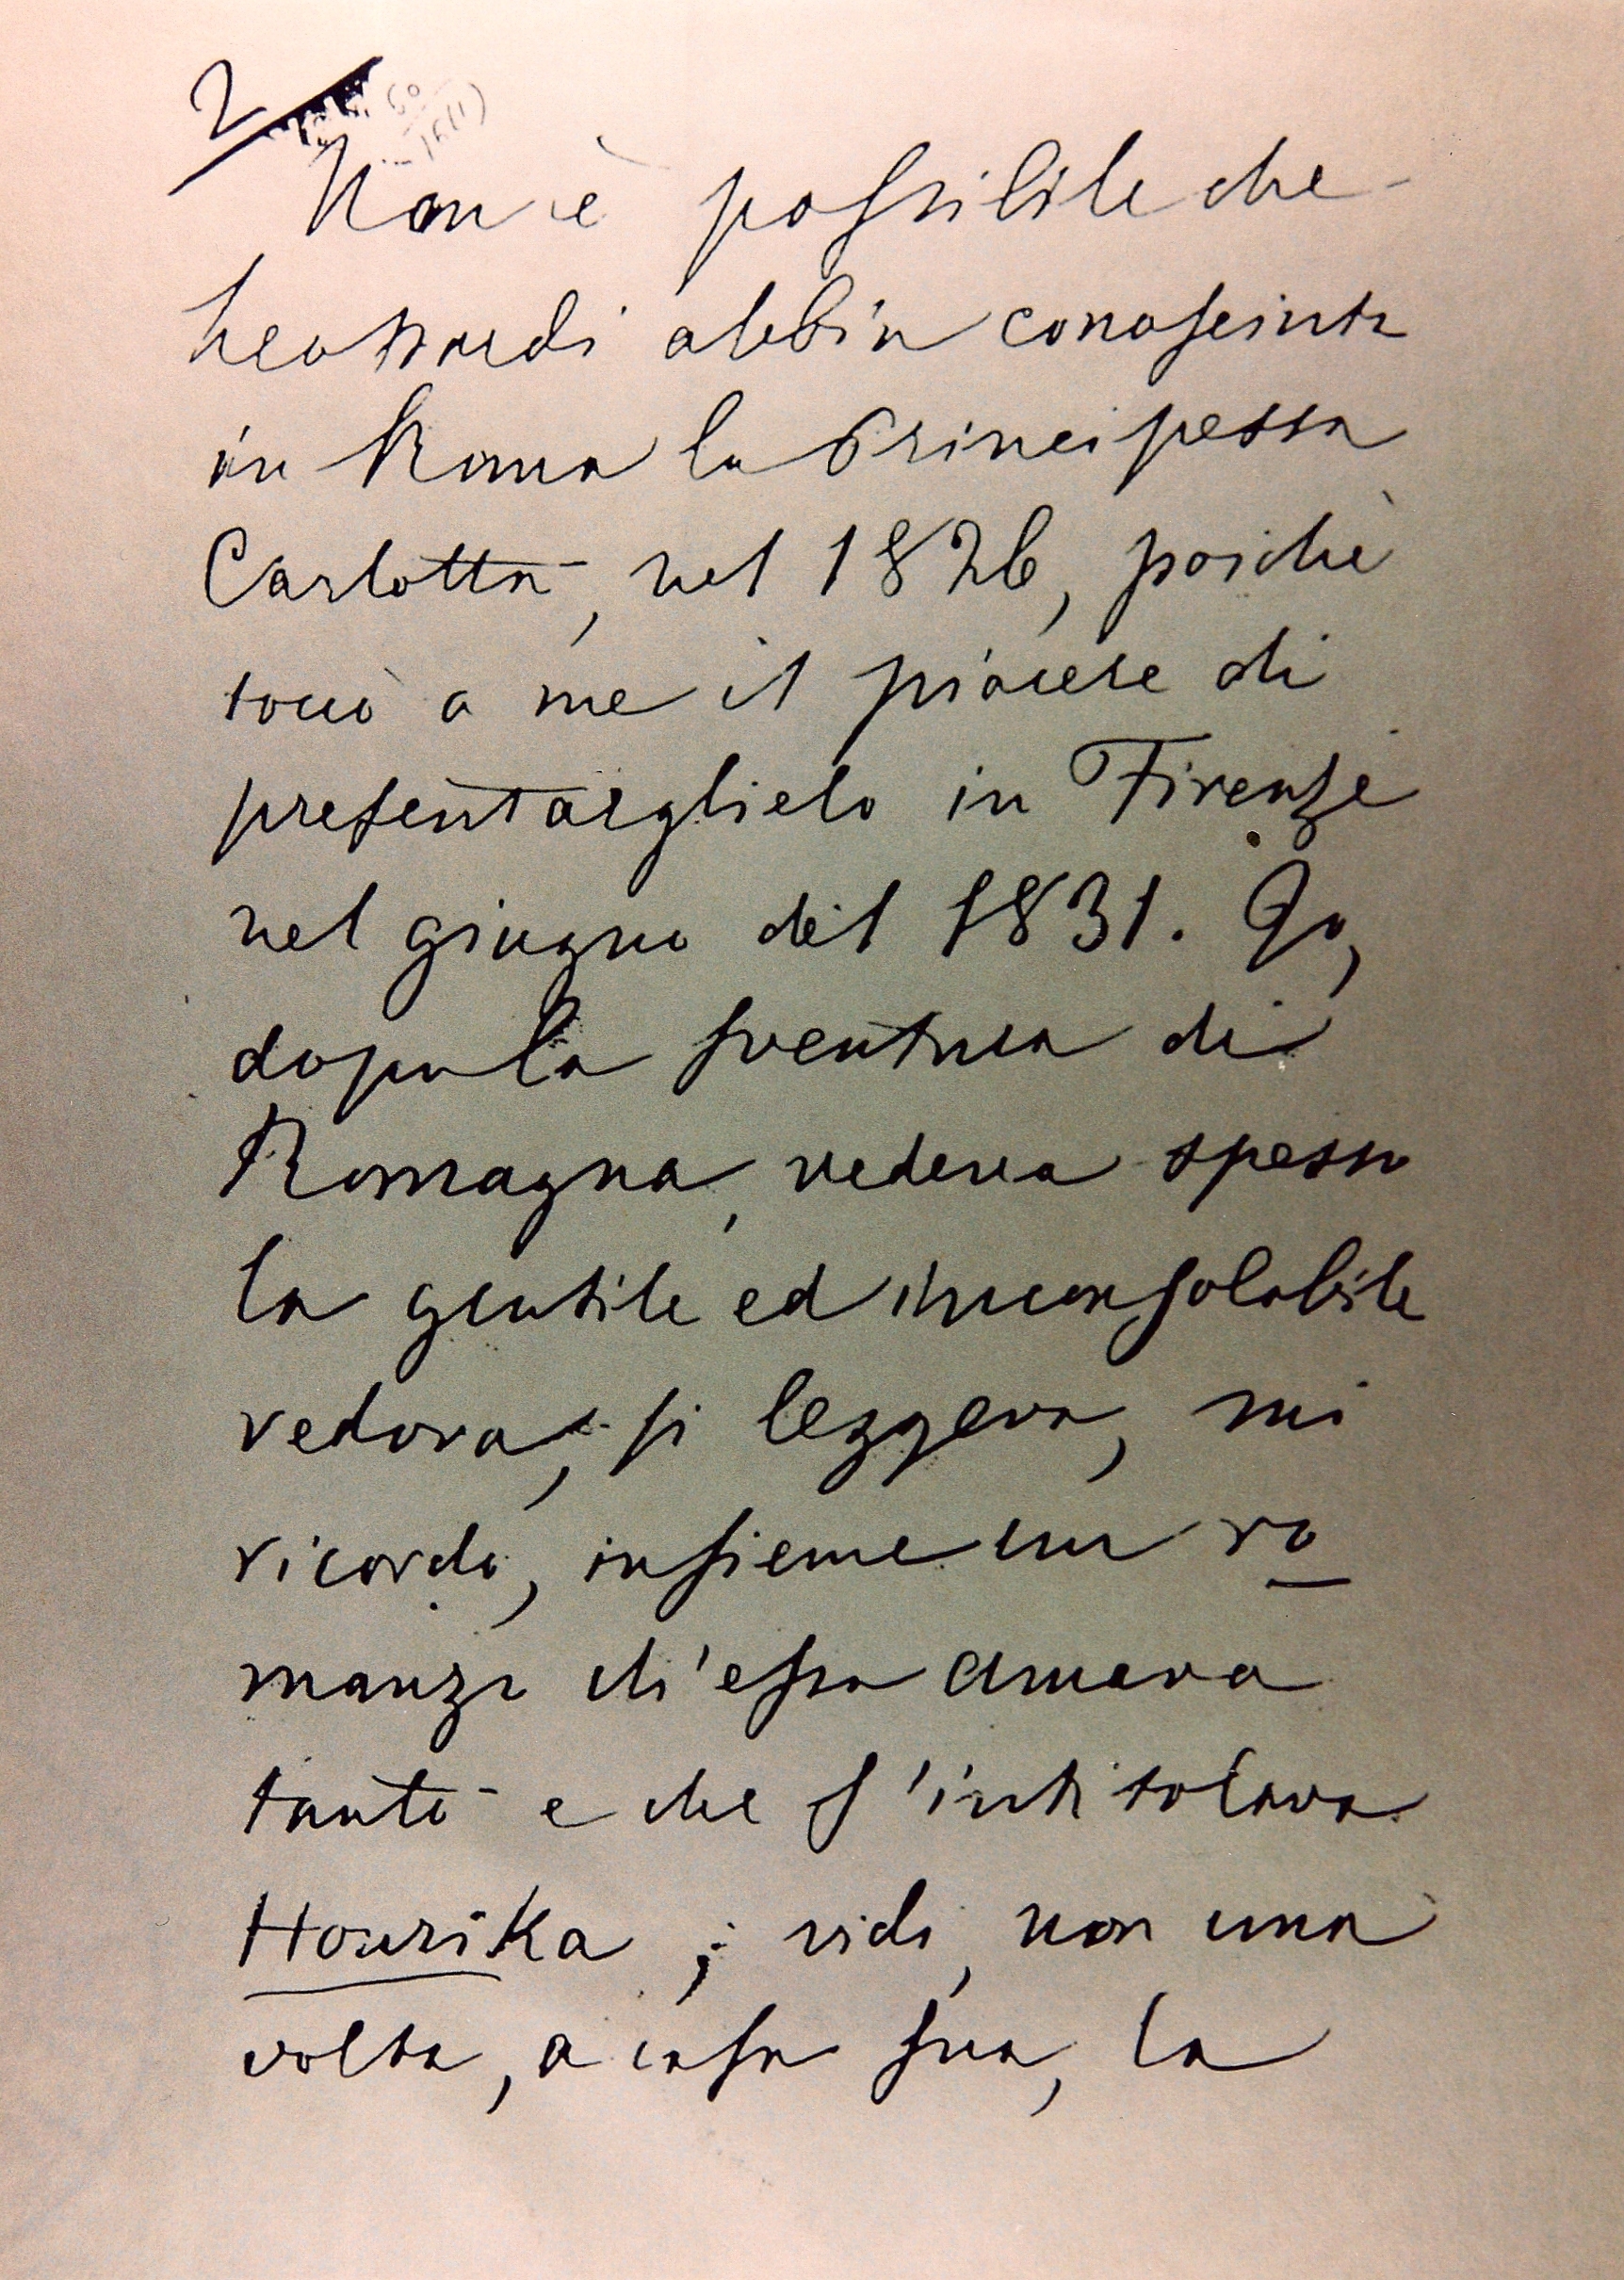 2
Non è possibile che
Leopardi abbia conosciuto
in Roma la Principessa
Carlotta, nel 1826, poichè
toccò a me il piacere di
presentarglielo in Firenze
nel giugno del 1831. Io,
dopo la sventura di
Romagna, vedeva spesso
la gentile ed inconsolabile
vedova, si leggeva, mi
ricordo, insieme un ro
manzo ch'essa amava
tanto e che s'intitolava
Hourika; vidi, non una
volta, a casa sua, la